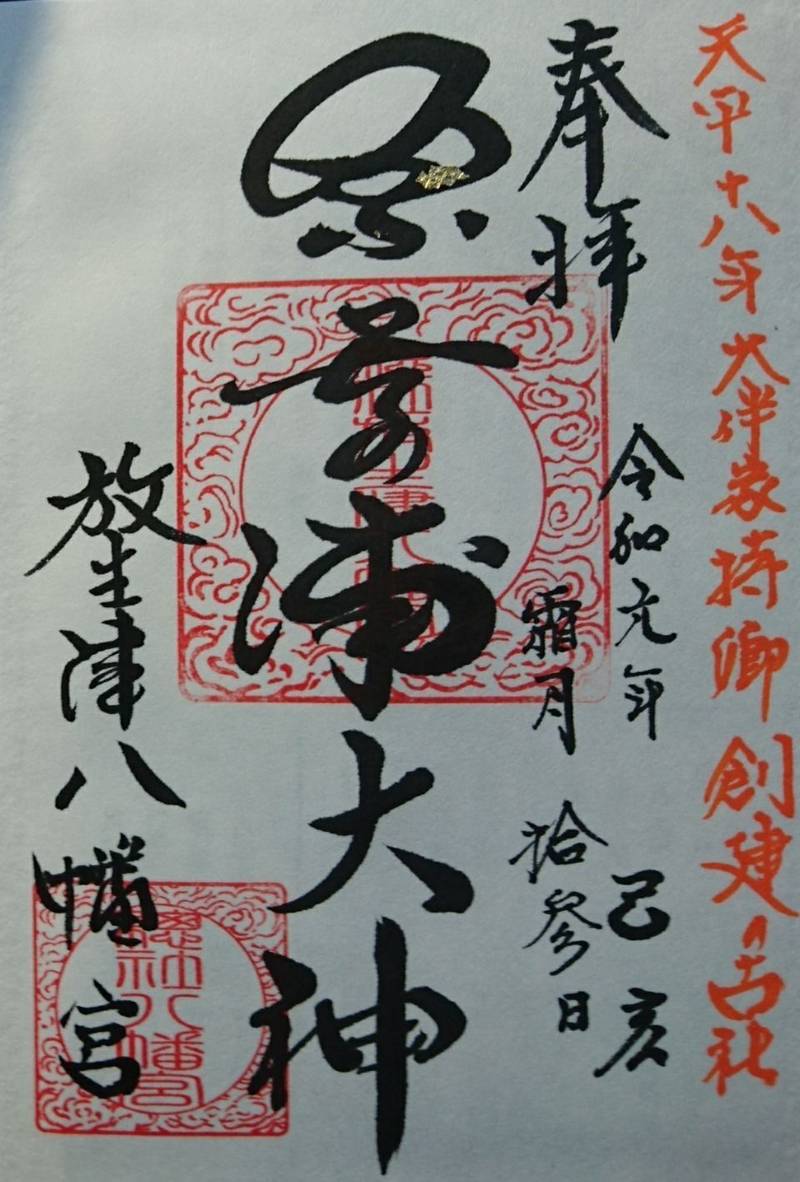 天平十八年大伴家持卿創建ノ古社
奉拝
令和元年 己亥
霜月 拾参日
奈呉浦大神
放生津八幡宮